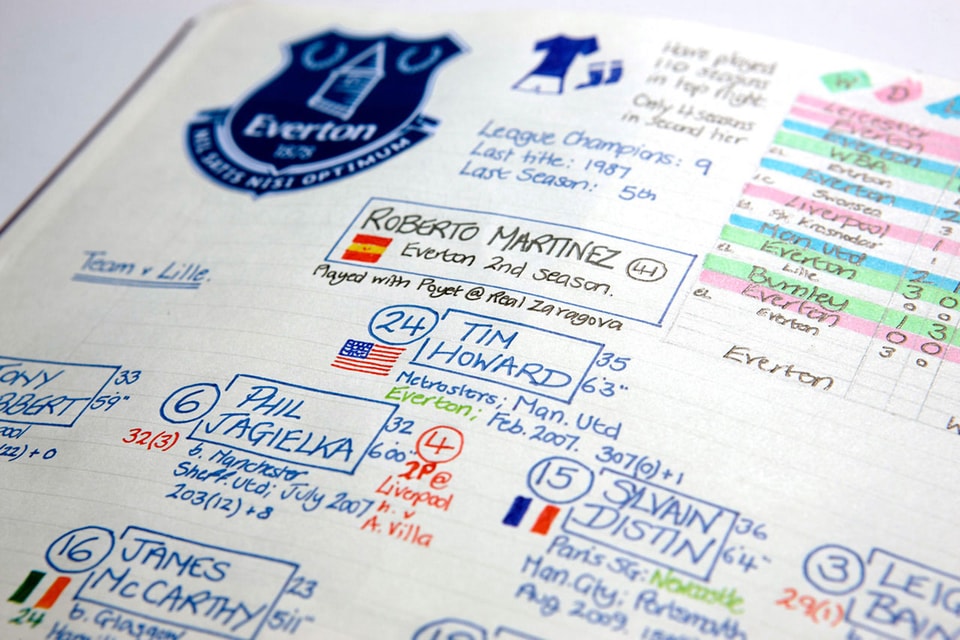 Everton
1878
NIL SATIS NISI OPTIMUM
Have played
110 seasons
in top flight.
Only 4 seasons
in second tier
League Champions: 9
Last title: 1987
Last Season: 5th
W D
Leicester
Everton
Everton
WBA
EL Everton
Everton 2
Swansea 3
Liverpool 1
EL FK Krasnodar 1
Man. Utd 2 1
Everton 3 0
EL Lille 0 0
Burnley 1 3
Everton 0 0
EL Everton 3 0
Everton
ROBERTO MARTINEZ 41
Everton 2nd season.
Played with Poyet @ Real Zaragova
Team v Lille.
24 TIM HOWARD 35
6'3"
Metrostars; Man. Utd
Everton; Feb. 2007.
307(0)+1
ONY 33
BBERT 5'9"
pool
(22) + 0
6 PHIL JAGIELKA 32
6'00"
32(3)
b. Manchester
Sheff. Utd; July 2007
203(12) + 8
4
2P@
Liverpool
h. v
A. Villa
15 SYLVAIN DISTIN 36
6'4"
Paris SG; Newcastle
Man. City; Portsmouth
Aug 2009.
16 JAMES McCARTHY 23
5'11"
24
b. Glasgow
3 LEIG
BAIN
29(1)